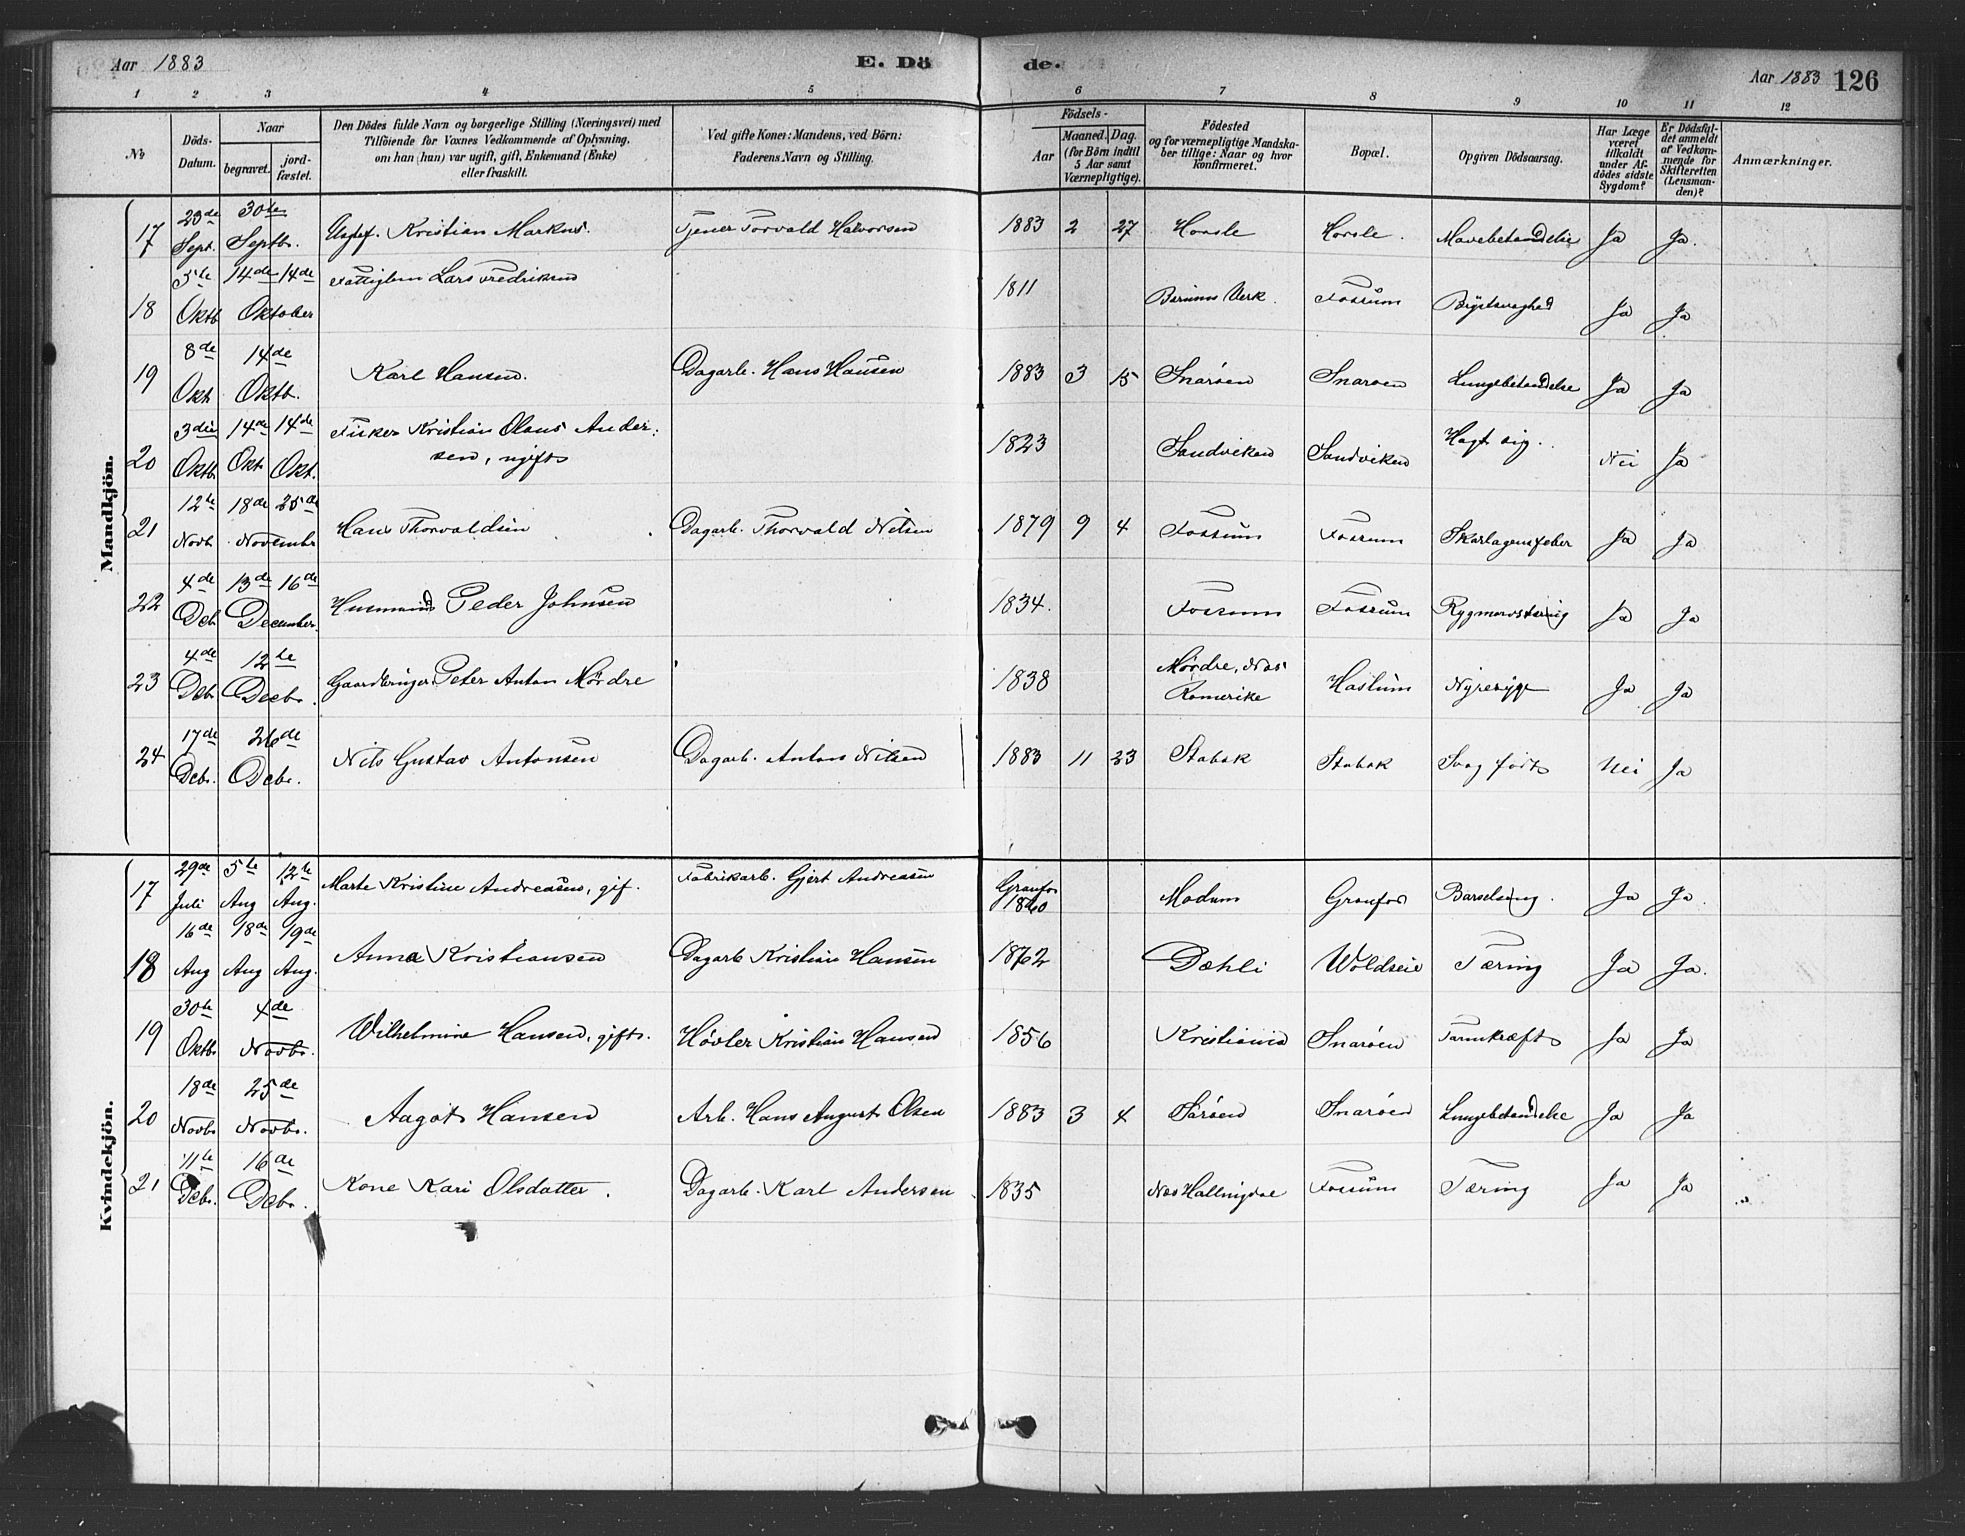 Aar 1883 E. Dö de. Aar 1883 126
1 2 3 4 5 6 7 8 9 10 11 12
No
Döds-Datum.
Naar
begravet.
jordfæstet.
Den Dödes fulde Navn og borgerlige Stilling (Næringsvei) med
Tilföiende for Voxnes Vedkommende af Oplysning,
om han (hun) var ugift, gift, Enkemand (Enke)
eller fraskilt.
Ved gifte Koner: Mandens, ved Börn:
Faderens Navn og Stilling.
Födsels-
Aar
Maaned. Dag.
(for Börn indtil
5 Aar samt
Værnepligtige).
Födested
og for værnepligtige Mandskaber tillige: Naar og hvor
konfirmeret.
Bopæl.
Opgiven Dödsaarsag.
Har Læge
været
tilkaldt
under Afdödes sidste
Sygdom?
Er Dödsfaldet anmeldt
af Vedkommende for
Skifteretten
(Lensmanden)?
Anmærkninger.
Mandkjön.
17 23de Sept. 30te Septb. Kristian Markus. Tjener Torvald Halvorsen 1883 2 27 Ja Ja.
18 5te Oktb 14de 14de Oktober Fattiglem Lars Fredriksen 1811 Bærums Verk. Fossum Brystsvaghed Ja Ja
19 8de Okt 14de Oktb. Karl Hansen. Dagarb. Hans Hansen 1883 3 15 Snarøen Snarøen Lungebetændelse Ja Ja
20 3die Oktb 14de Okt. 14de Okt. Fisker Kristian Olaus Andersen, ugift 1823 Sandviken Sandviken Nei Ja
21 12te Novb. 18de 25de Novembr Hans Thorvaldsen Dagarb. Thorvald Nilsen 1879 9 4 Fossum Fossum Skarlagensfeber Ja Ja
22 4de Deb. 13de 16de December. Husmand Peder Johnsen 1834. Fossum Fossum Rygmarvstæring Ja Ja
23 4de Deb. 12te Decb. Gaardbruger Peter Anton Mørdre 1838 Mørdre, Næs Romerike Haslum Nyresyge Ja Ja
24 17de Debr. 26de Debr. Nils Gustav Antonsen Dagarb. Anton Nilsen 1883 11 23 Stabæk Stabæk Svag født Nei Ja
Kvindekjön.
17 29de Juli 5te Aug 12te Aug. Marte Kristine Andreasen, gif. Fabrikarb. Gjert Andreasen Granfos 1860 Modum Granfos Barselseng. Ja Ja.
18 16de Aug 18de Aug 19de Aug. Anna Kristiansen Dagarb Kristian Hansen 1862 Dæhli Tæring Ja Ja.
19 30te Oktb. 4de Novbr. Wilhelmine Hansen, gift. Høvler Kristian Hansen 1856 Kristiania Snarøen Tarmkræft Ja Ja
20 18de Novbr 25de Novbr. Aagot Hansen Arb. Hans August Olsen 1883 3 4 Snarøen Lungebetændelse Ja Ja
21 11te Debr. 16de Debr. Kone Kari Olsdatter. Dagarb. Karl Andersen 1835 Næs Hallingdal Fossum Tæring Ja Ja